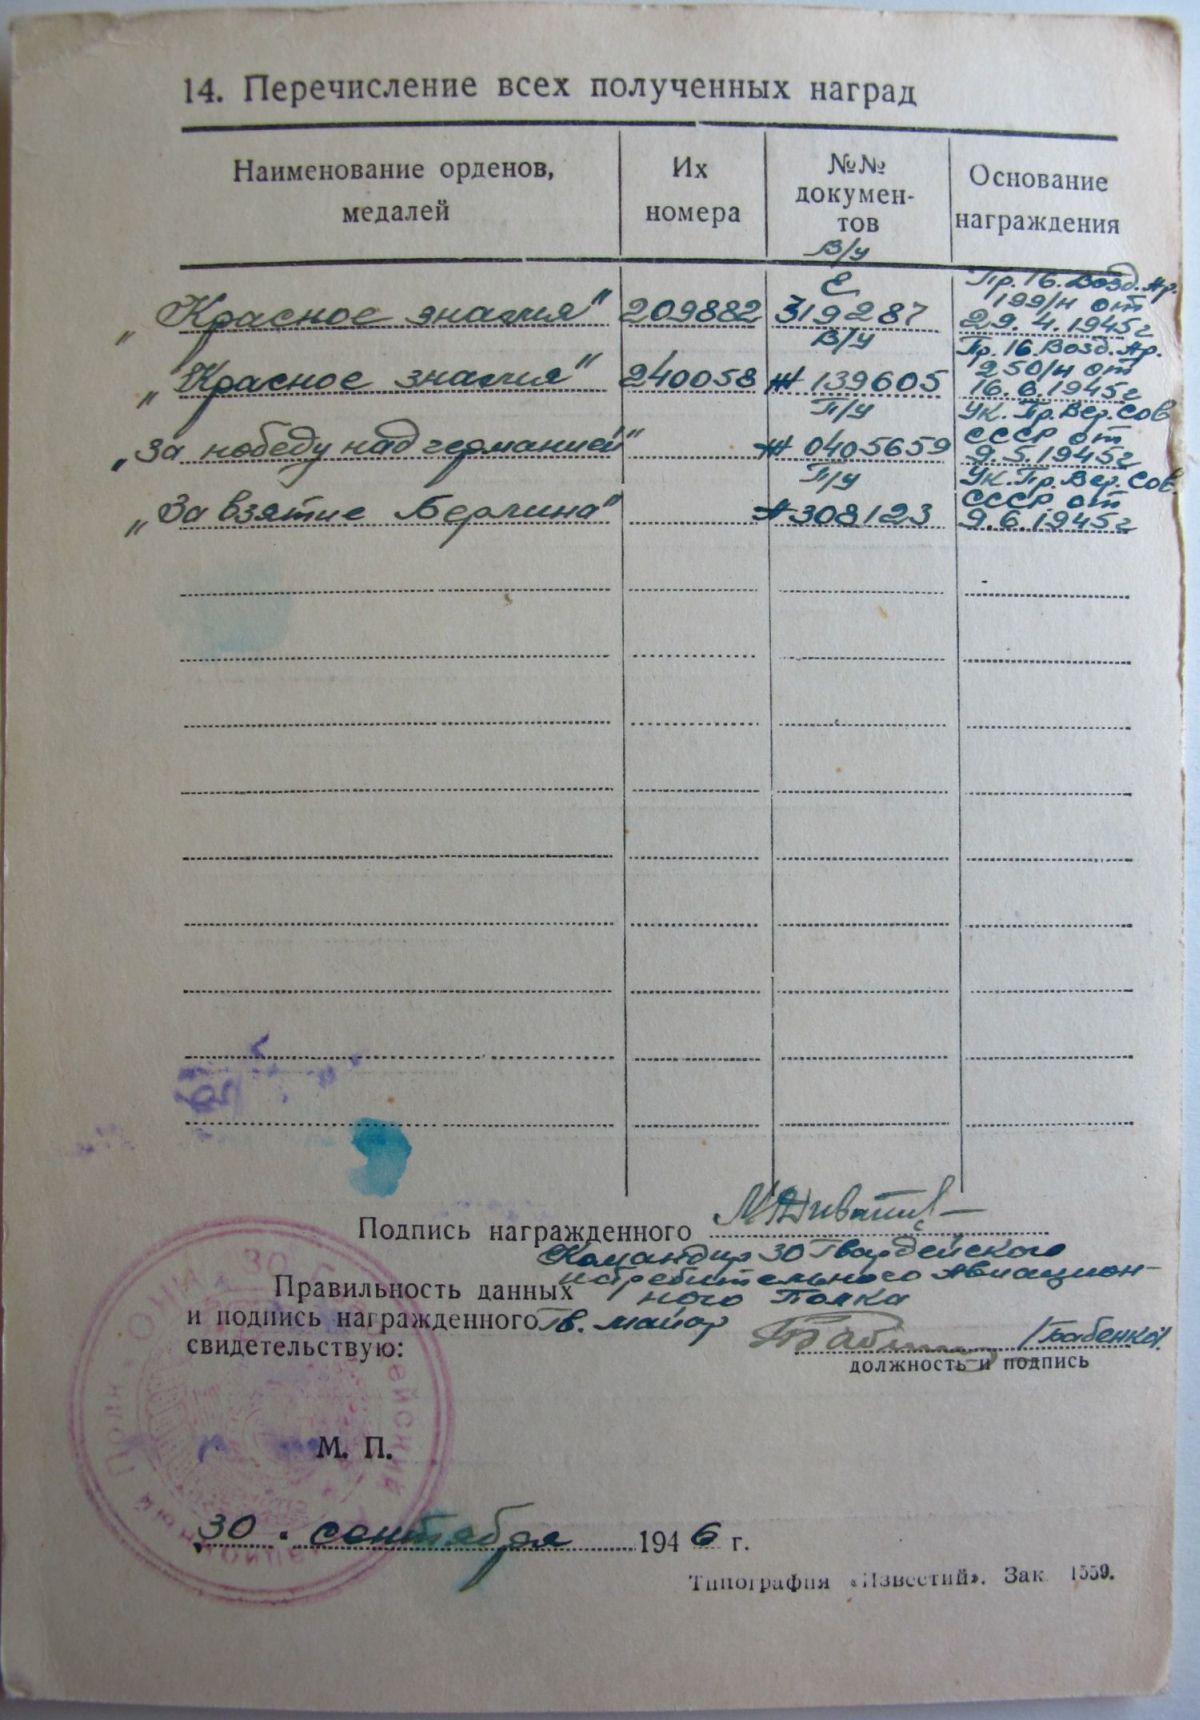 14. Перечисление всех полученных наград
Наименование орденов,
медалей
Их
номера
№№
докумен-
тов
Основание
награждения
В/у
Е
Пр. 16. Возд. Ар.
199/н от
„Красное знамя" 209882 319287 29.4.1945г
В/у
Пр. 16 Возд. Ар.
250/н от
„Красное знамя" 240058 Ж 139605 16.6.1945г
П/у
Ук. Пр. Вер. Сов
СССР от
„За победу над германией" Ж 0405659 9.5.1945г
П/у
Ук. Пр. Вер. Сов.
СССР от
„За взятие Берлина" А 308123 9.6.1945г
Подпись награжденного
Командир 30 Гвардейского
Правильность данных истребительного Авиацион-
ного Полка
и подпись награжденного Гв. майор
свидетельствую: /Бабенко/
должность и подпись
М. П.
30. сентября 1946 г.
Типография «Известий». Зак. 1559.